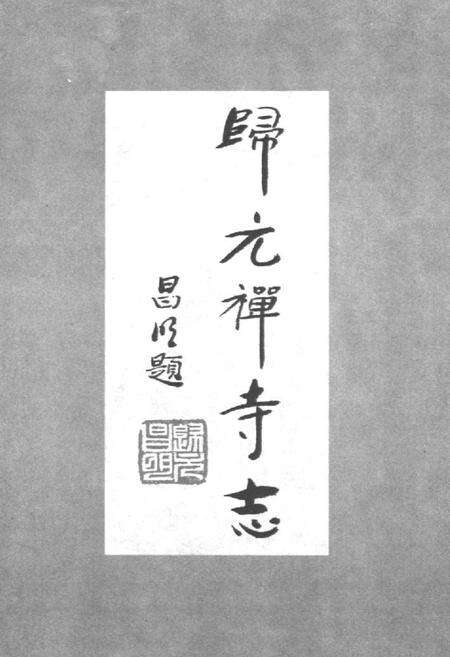 歸元禪寺志
昌明題
歸元
昌明